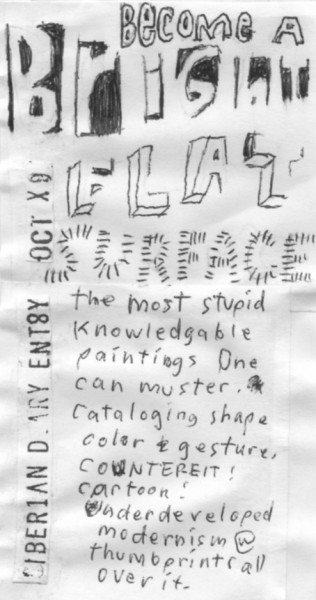 BECOME A
BRIGHT
FLAT
SURFACE
the most stupid
knowledgable
paintings One
can muster.
cataloging shape
color & gesture.
COUNTEREIT!
cartoon!
Underdeveloped
modernism @
thumbprint(all
over it.
OCT X9
SIBERIAN D.ARY ENT8Y